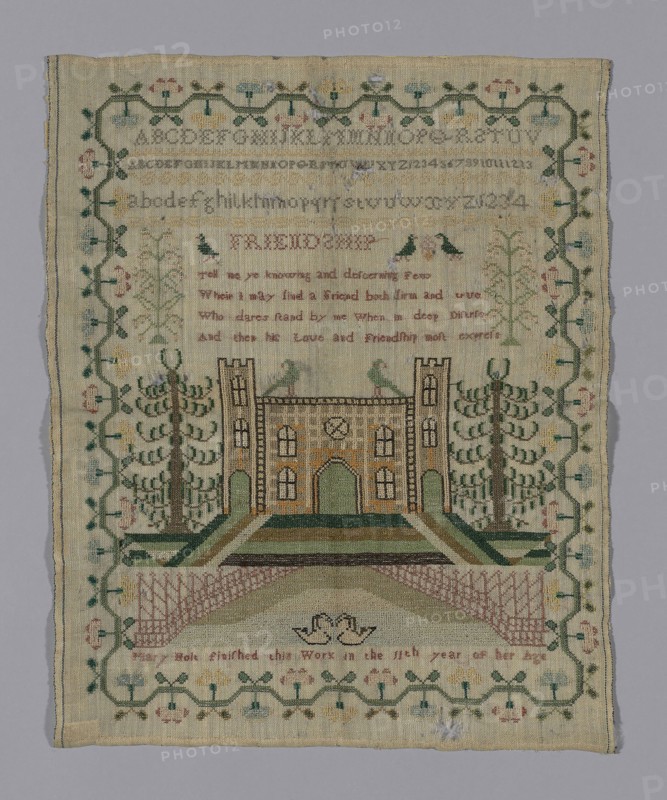 ABCDEFGHIJKLMNOPQRSTUV
ABCDEFGHIJKLMNOPQRSTUVWXYZ12345678910111213
abcdefghiklmnopqrstuvwxyz1234
FRIENDSHIP
Tell me ye knowing and descerning Few
Where I may find a Friend both firm and true
Who dares stand by me When in deep Distress
And then his Love and Friendship most express
Mary Holt finished this Work in the 11th year of her Age
PHOTO12